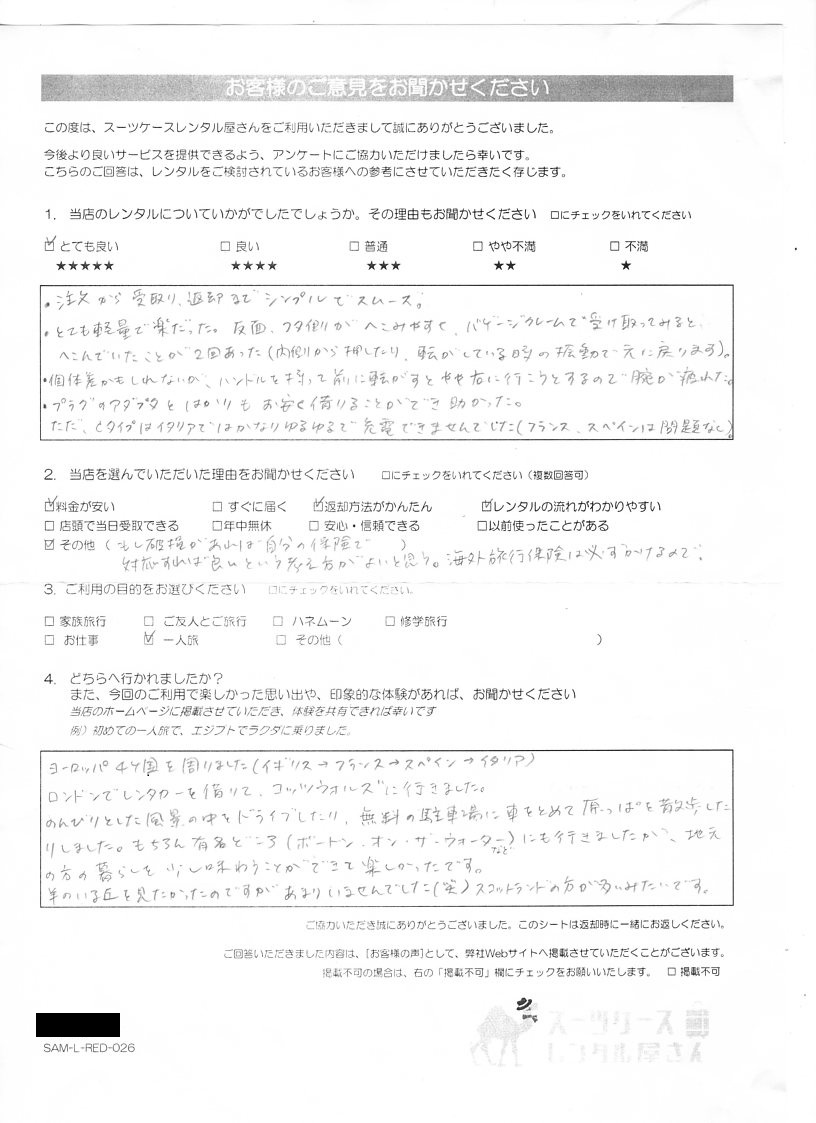 お客様のご意見をお聞かせください
この度は、スーツケースレンタル屋さんをご利用いただきまして誠にありがとうございました。
今後より良いサービスを提供できるよう、アンケートにご協力いただけましたら幸いです。
こちらのご回答は、レンタルをご検討されているお客様への参考にさせていただきたく存じます。
1. 当店のレンタルについていかがでしたでしょうか。その理由もお聞かせください □にチェックをいれてください
☑とても良い □ 良い □ 普通 □ やや不満 □ 不満
★★★★★ ★★★★ ★★★ ★★ ★
・注文から受取り、返却までシンプルでスムーズ。
・とても軽量で楽だった。反面、フタ側がへこみやすく、バゲージクレームで受け取ってみると、
へこんでいたことが2回あった(内側から押したり、転がしている時の振動で元に戻ります)。
・個体差かもしれないが、ハンドルを持って前に転がすとやや右に行こうとするので腕が疲れた。
・プラグのアダプタとはかりもお安く借りることができ助かった。
ただ、Cタイプはイタリアではかなりゆるゆるで充電できませんでした(フランス、スペインは問題なし)
2. 当店を選んでいただいた理由をお聞かせください □にチェックをいれてください(複数回答可)
☑料金が安い □ すぐに届く ☑返却方法がかんたん ☑レンタルの流れがわかりやすい
□ 店頭で当日受取できる □年中無休 □ 安心・信頼できる □以前使ったことがある
☑ その他 ( もし破損があれば自分の保険で )
対応すれば良いという考え方がよいと思う。海外旅行保険は必ずかけるので。
3. ご利用の目的をお選びください □にチェックをいれてください。
□ 家族旅行 □ ご友人とご旅行 □ ハネムーン □ 修学旅行
□ お仕事 ☑ 一人旅 □ その他 ( )
4. どちらへ行かれましたか?
また、今回のご利用で楽しかった思い出や、印象的な体験があれば、お聞かせください
当店のホームページに掲載させていただき、体験を共有できれば幸いです
例）初めての一人旅で、エジプトでラクダに乗りました。
ヨーロッパ4ケ国を周りました(イギリス→フランス→スペイン→イタリア)
ロンドンでレンタカーを借りて、コッツウォルズに行きました。
のんびりとした風景の中をドライブしたり、無料の駐車場に車をとめて原っぱを散歩した
りしました。もちろん有名どころ(ボートン・オン・ザ・ウォーターなど)にも行きましたが、地元
の方の暮らしを少し味わうことができて楽しかったです。
羊のいる丘を見たかったのですがあまりいませんでした(笑)スコットランドの方が多いみたいです。
ご協力いただき誠にありがとうございました。このシートは返却時に一緒にお返しください。
ご回答いただきました内容は、[お客様の声]として、弊社Webサイトへ掲載させていただくことがございます。
掲載不可の場合は、右の「掲載不可」欄にチェックをお願いいたします。 □ 掲載不可
スーツケース
レンタル屋さん
SAM-L-RED-026